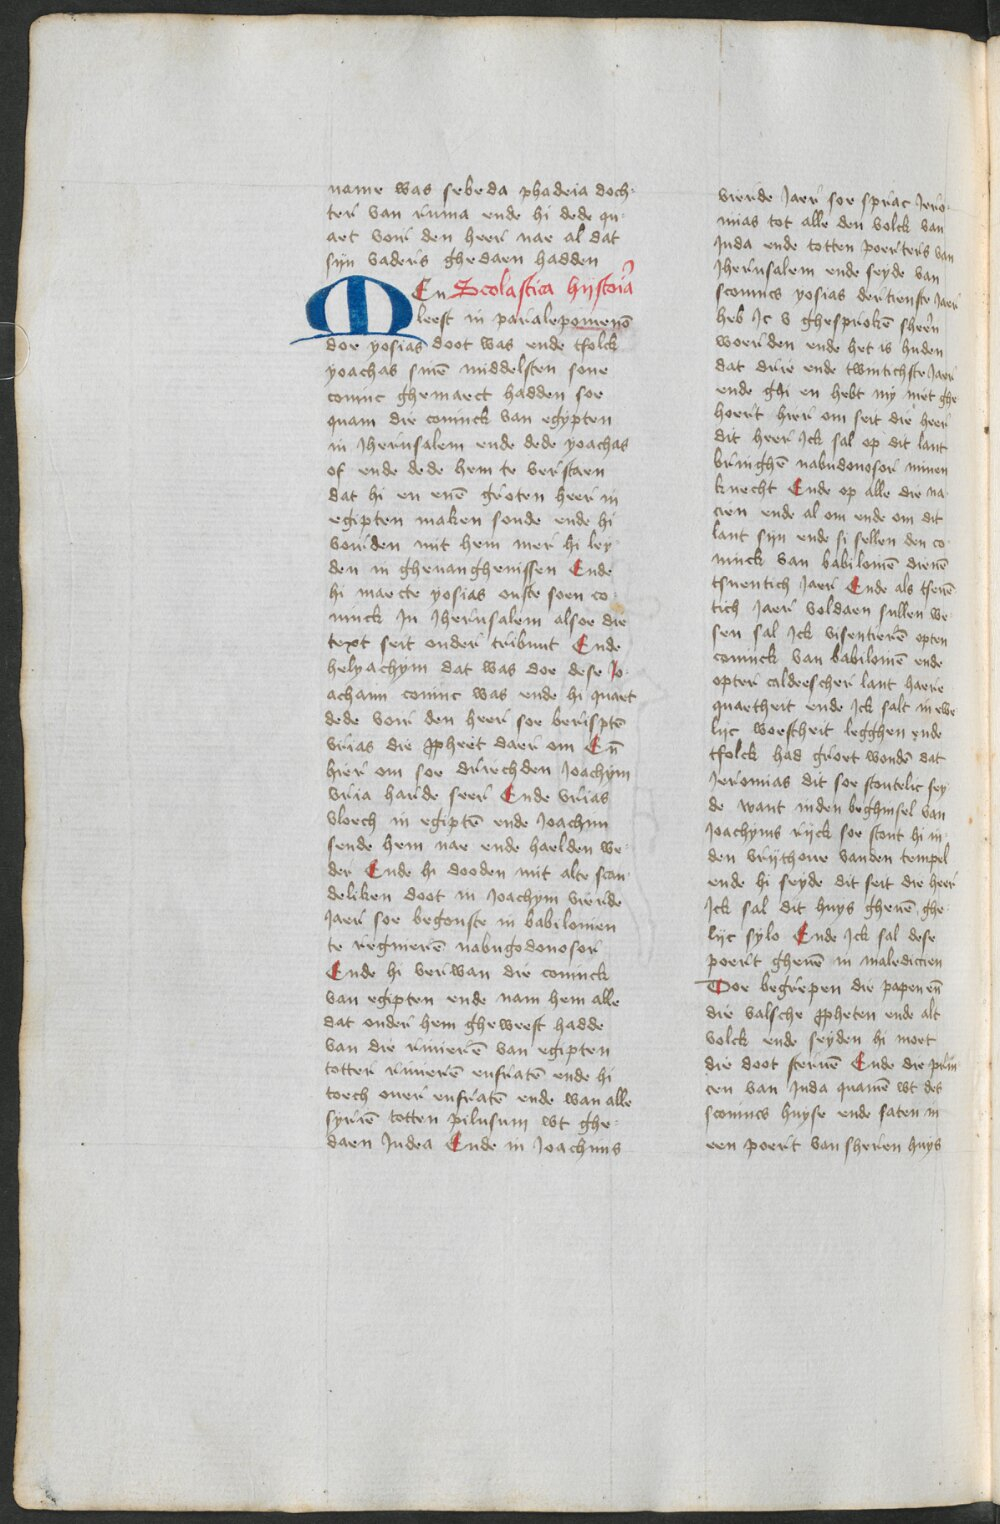 name was sebeda phadeia doch-
ter van ruma ende hi dede qu-
aet voir den heer nae al dat
sijn vaders ghedaen hadden
MEn Scolastica hijstoria
leest in paralepomenō
doe yosias doot was ende tfolck
yoachas sinē middelsten sone
coninc ghemaect hadden soe
quam die coninck van egypten
in Jherusalem ende dede yoachas
of ende dede hem te verstaen
dat hi en enē groten heer in
egipten maken soude ende hi
voirden mit hem mer hi ley-
den in ghevanghenissen Ende
hi maecte yosias outste soen co-
ninck in Jherusalem alsoe die
text seit onder tribuut Ende
helyachym dat was doe dese Jo-
achim coninc was ende hi quaet
dede voir den heer soe berisptē
vrias die ꝓpheet daer om Eñ
hier om soe driechden Joachym
vria harde seer Ende vrias
vloech in egiptē ende Joachim
sende hem nae ende haelden we-
der Ende hi dooden mit alte scan-
deliken doot in Joachym vierde
Jaer soe begonste in babilonien
te regnierē nabugodonosor
Ende hi verwan die coninck
van egipten ende nam hem alle
dat onder hem gheweest hadde
van die rivierē van egipten
totter rivierē eufratē ende hi
toech over eufratē ende wan alle
syriē totten pilusum wt ghe-
daen Judea Ende in Joachims
vierde Jaer soe sprac Jero-
mias tot alle den volck van
Juda ende totten poerters van
Jherusalem ende seyde van
sconincs yosias dertienste Jaer
heb Jc v ghesprokē sheern
woerden ende het is huden
dat drie ende twintichste Jaer
ende ghi en hebt my niet ghe-
hoert hier om seit die heer
dit heer Jck sal op dit lant
bringhē nabudonosor minen
knecht Ende op alle die na-
cien ende al om ende om dit
lant sijn ende si sellen den co-
ninck van babilonien dienē
tsuentich Jaer Ende als tseuē
tich Jaer voldaen sullen we-
sen sal Jck visentierē opten
coninck van babilonien ende
opter caldeescher lant haere
quaetheit ende Jck salt in ewe
lijc woestheit legghen ende
tfolck had groet wondē dat
Jeromias dit soe stoutelic sey-
de want inden beghinsel van
Joachyms rijck soe stont hi in-
den vrijthove vanden tempel
ende hi seyde dit seit die heer
Jck sal dit huys ghevē ghe-
lijc sylo Ende Jck sal dese
poert ghevē in malediccien
Doe begrepen die papen eñ
die valsche ꝓpheten ende alt
volck ende seyden hi moet
die doot stervē Ende die prin
cen van Juda quamē wt des
sconincs huyse ende saten in
een poert van sheren huys